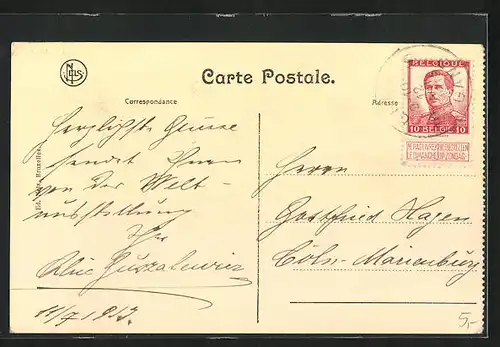 NELS
Carte Postale.
Correspondance
Adresse
BELGIQUE
10 BELGIË 10
NE PAS LIVRER LE DIMANCHE
NIET BESTELLEN OP ZONDAG
Ed. Nels, Bruxelles
Herzlichste Grüsse
sendet Ihnen
von der Welt-
ausstellung
Ihr
11/7 1913.
Herrn
Gottfried Hagen
Cöln-Marienburg
5,-